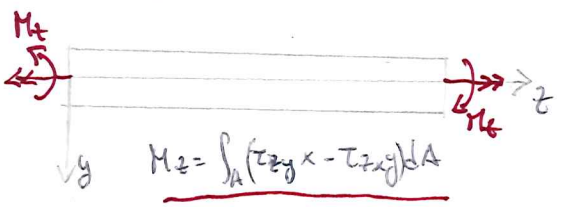 M_t
z
M_t
y
M_z = ∫_A (τ_zy x - τ_zx y) dA